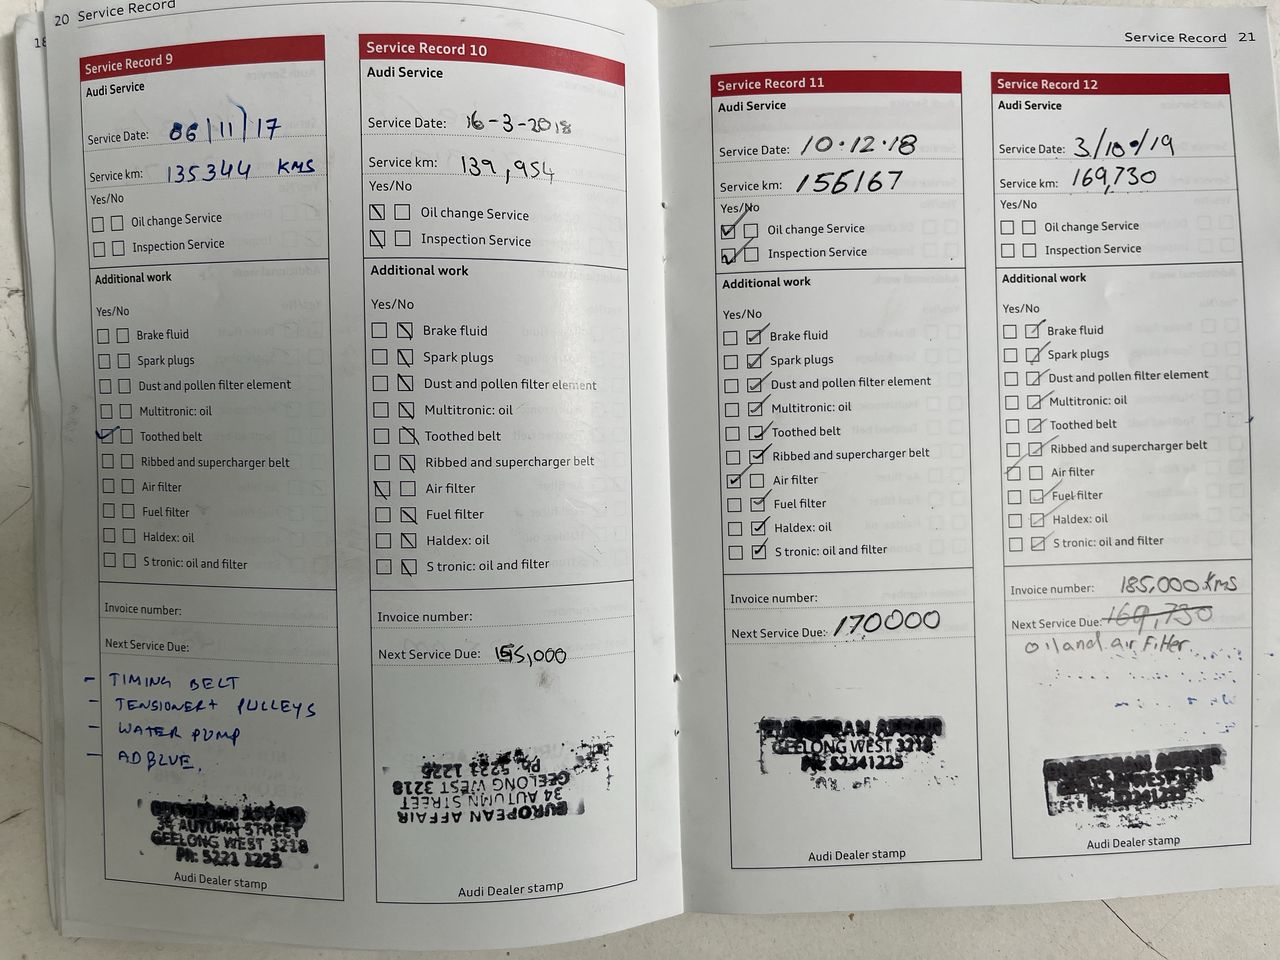 20 Service Record
18
Service Record 9
Audi Service
Service Date: 06/11/17
Service km: 135344 KMS
Yes/No
Oil change Service
Inspection Service
Additional work
Yes/No
Brake fluid
Spark plugs
Dust and pollen filter element
Multitronic: oil
Toothed belt
Ribbed and supercharger belt
Air filter
Fuel filter
Haldex: oil
S tronic: oil and filter
Invoice number:
Next Service Due:
- TIMING BELT
- TENSIONER + PULLEYS
- WATER PUMP
- ADBLUE.
EUROPEAN AFFAIR
34 AUTUMN STREET
GEELONG WEST 3218
PH: 5221 1225
Audi Dealer stamp
Service Record 10
Audi Service
Service Date: 16-3-2018
Service km: 139,954
Yes/No
Oil change Service
Inspection Service
Additional work
Yes/No
Brake fluid
Spark plugs
Dust and pollen filter element
Multitronic: oil
Toothed belt
Ribbed and supercharger belt
Air filter
Fuel filter
Haldex: oil
S tronic: oil and filter
Invoice number:
Next Service Due: 155,000
EUROPEAN AFFAIR
34 AUTUMN STREET
GEELONG WEST 3218
Ph: 5221 1225
Audi Dealer stamp
Service Record 21
Service Record 11
Audi Service
Service Date: 10.12.18
Service km: 156167
Yes/No
Oil change Service
Inspection Service
Additional work
Yes/No
Brake fluid
Spark plugs
Dust and pollen filter element
Multitronic: oil
Toothed belt
Ribbed and supercharger belt
Air filter
Fuel filter
Haldex: oil
S tronic: oil and filter
Invoice number:
Next Service Due: 170000
EUROPEAN AFFAIR
GEELONG WEST 3218
PH: 52241225
Audi Dealer stamp
Service Record 12
Audi Service
Service Date: 3/10/19
Service km: 169,730
Yes/No
Oil change Service
Inspection Service
Additional work
Yes/No
Brake fluid
Spark plugs
Dust and pollen filter element
Multitronic: oil
Toothed belt
Ribbed and supercharger belt
Air filter
Fuel filter
Haldex: oil
S tronic: oil and filter
Invoice number: 185,000 KMS
Next Service Due: 169,730
oil and air Filter
EUROPEAN AFFAIR
Audi Dealer stamp